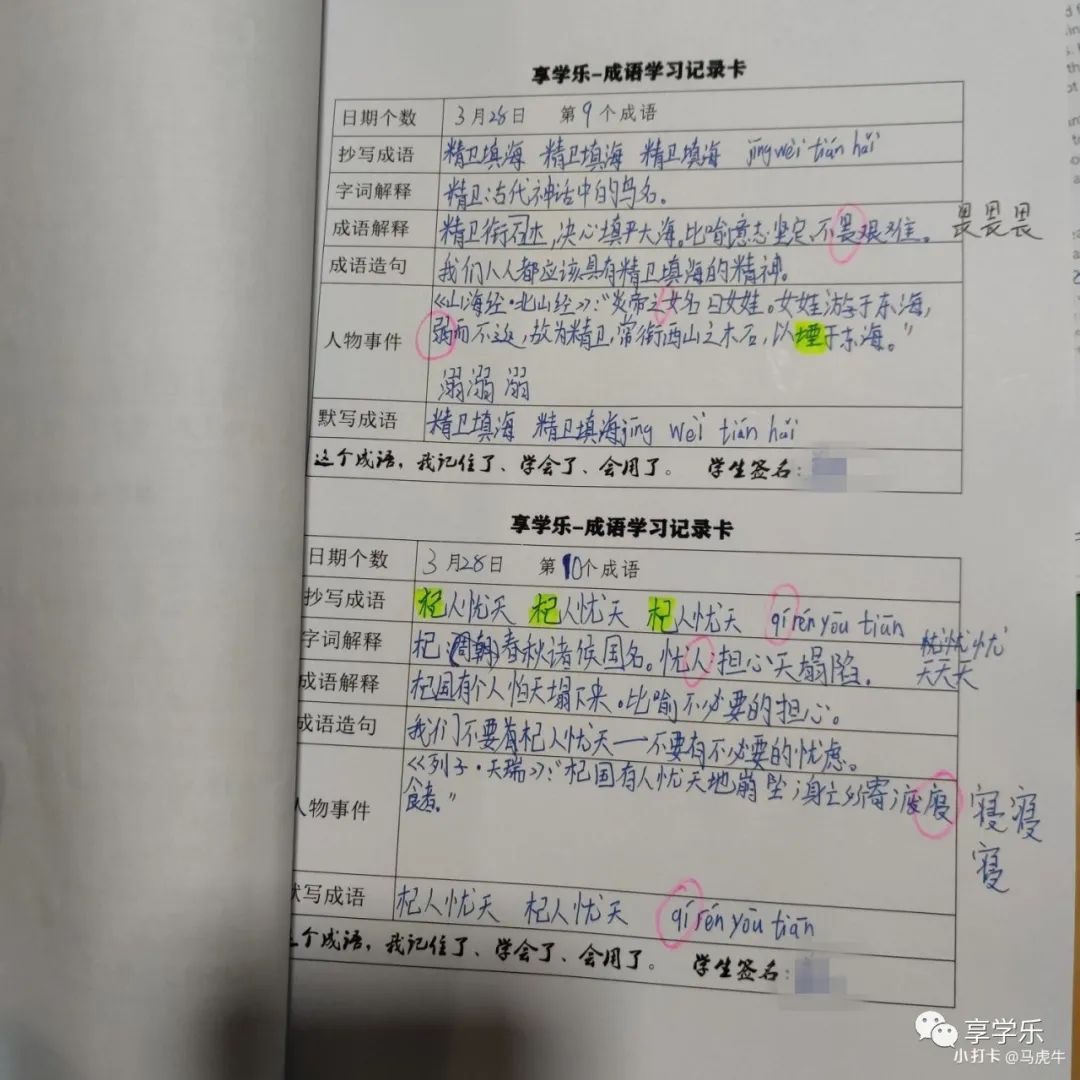 享学乐-成语学习记录卡
日期个数 3月28日 第9个成语
抄写成语 精卫填海 精卫填海 精卫填海 jīng wèi tián hǎi
字词解释 精卫:古代神话中的鸟名。
成语解释 精卫衔石杰,决心填平大海。比喻意志坚定,不畏艰难。 畏畏畏
成语造句 我们人人都应该具有精卫填海的精神。
人物事件 《山海经·北山经》:“炎帝之女名曰女娃。女娃游于东海,
弱而不返,故为精卫,常衔西山之木石,以堙于东海。”
溺溺溺
默写成语 精卫填海 精卫填海 jīng wèi tián hǎi
这个成语,我记住了、学会了、会用了。 学生签名:
享学乐-成语学习记录卡
日期个数 3月28日 第10个成语
抄写成语 杞人忧天 杞人忧天 杞人忧天 qí rén yōu tiān
忧忧忧
字词解释 杞:周朝春秋诸侯国名。忧人:担心天塌陷。 天天天
成语解释 杞国有个人怕天塌下来。比喻不必要的担心。
成语造句 我们不要有杞人忧天——不要有不必要的忧虑。
人物事件 《列子·天瑞》:“杞国有人忧天地崩坠,身亡所寄,废寝 寝寝
食者。”
寝
默写成语 杞人忧天 杞人忧天 qí rén yōu tiān
个成语,我记住了、学会了、会用了。 学生签名:
享学乐
小打卡@马虎牛